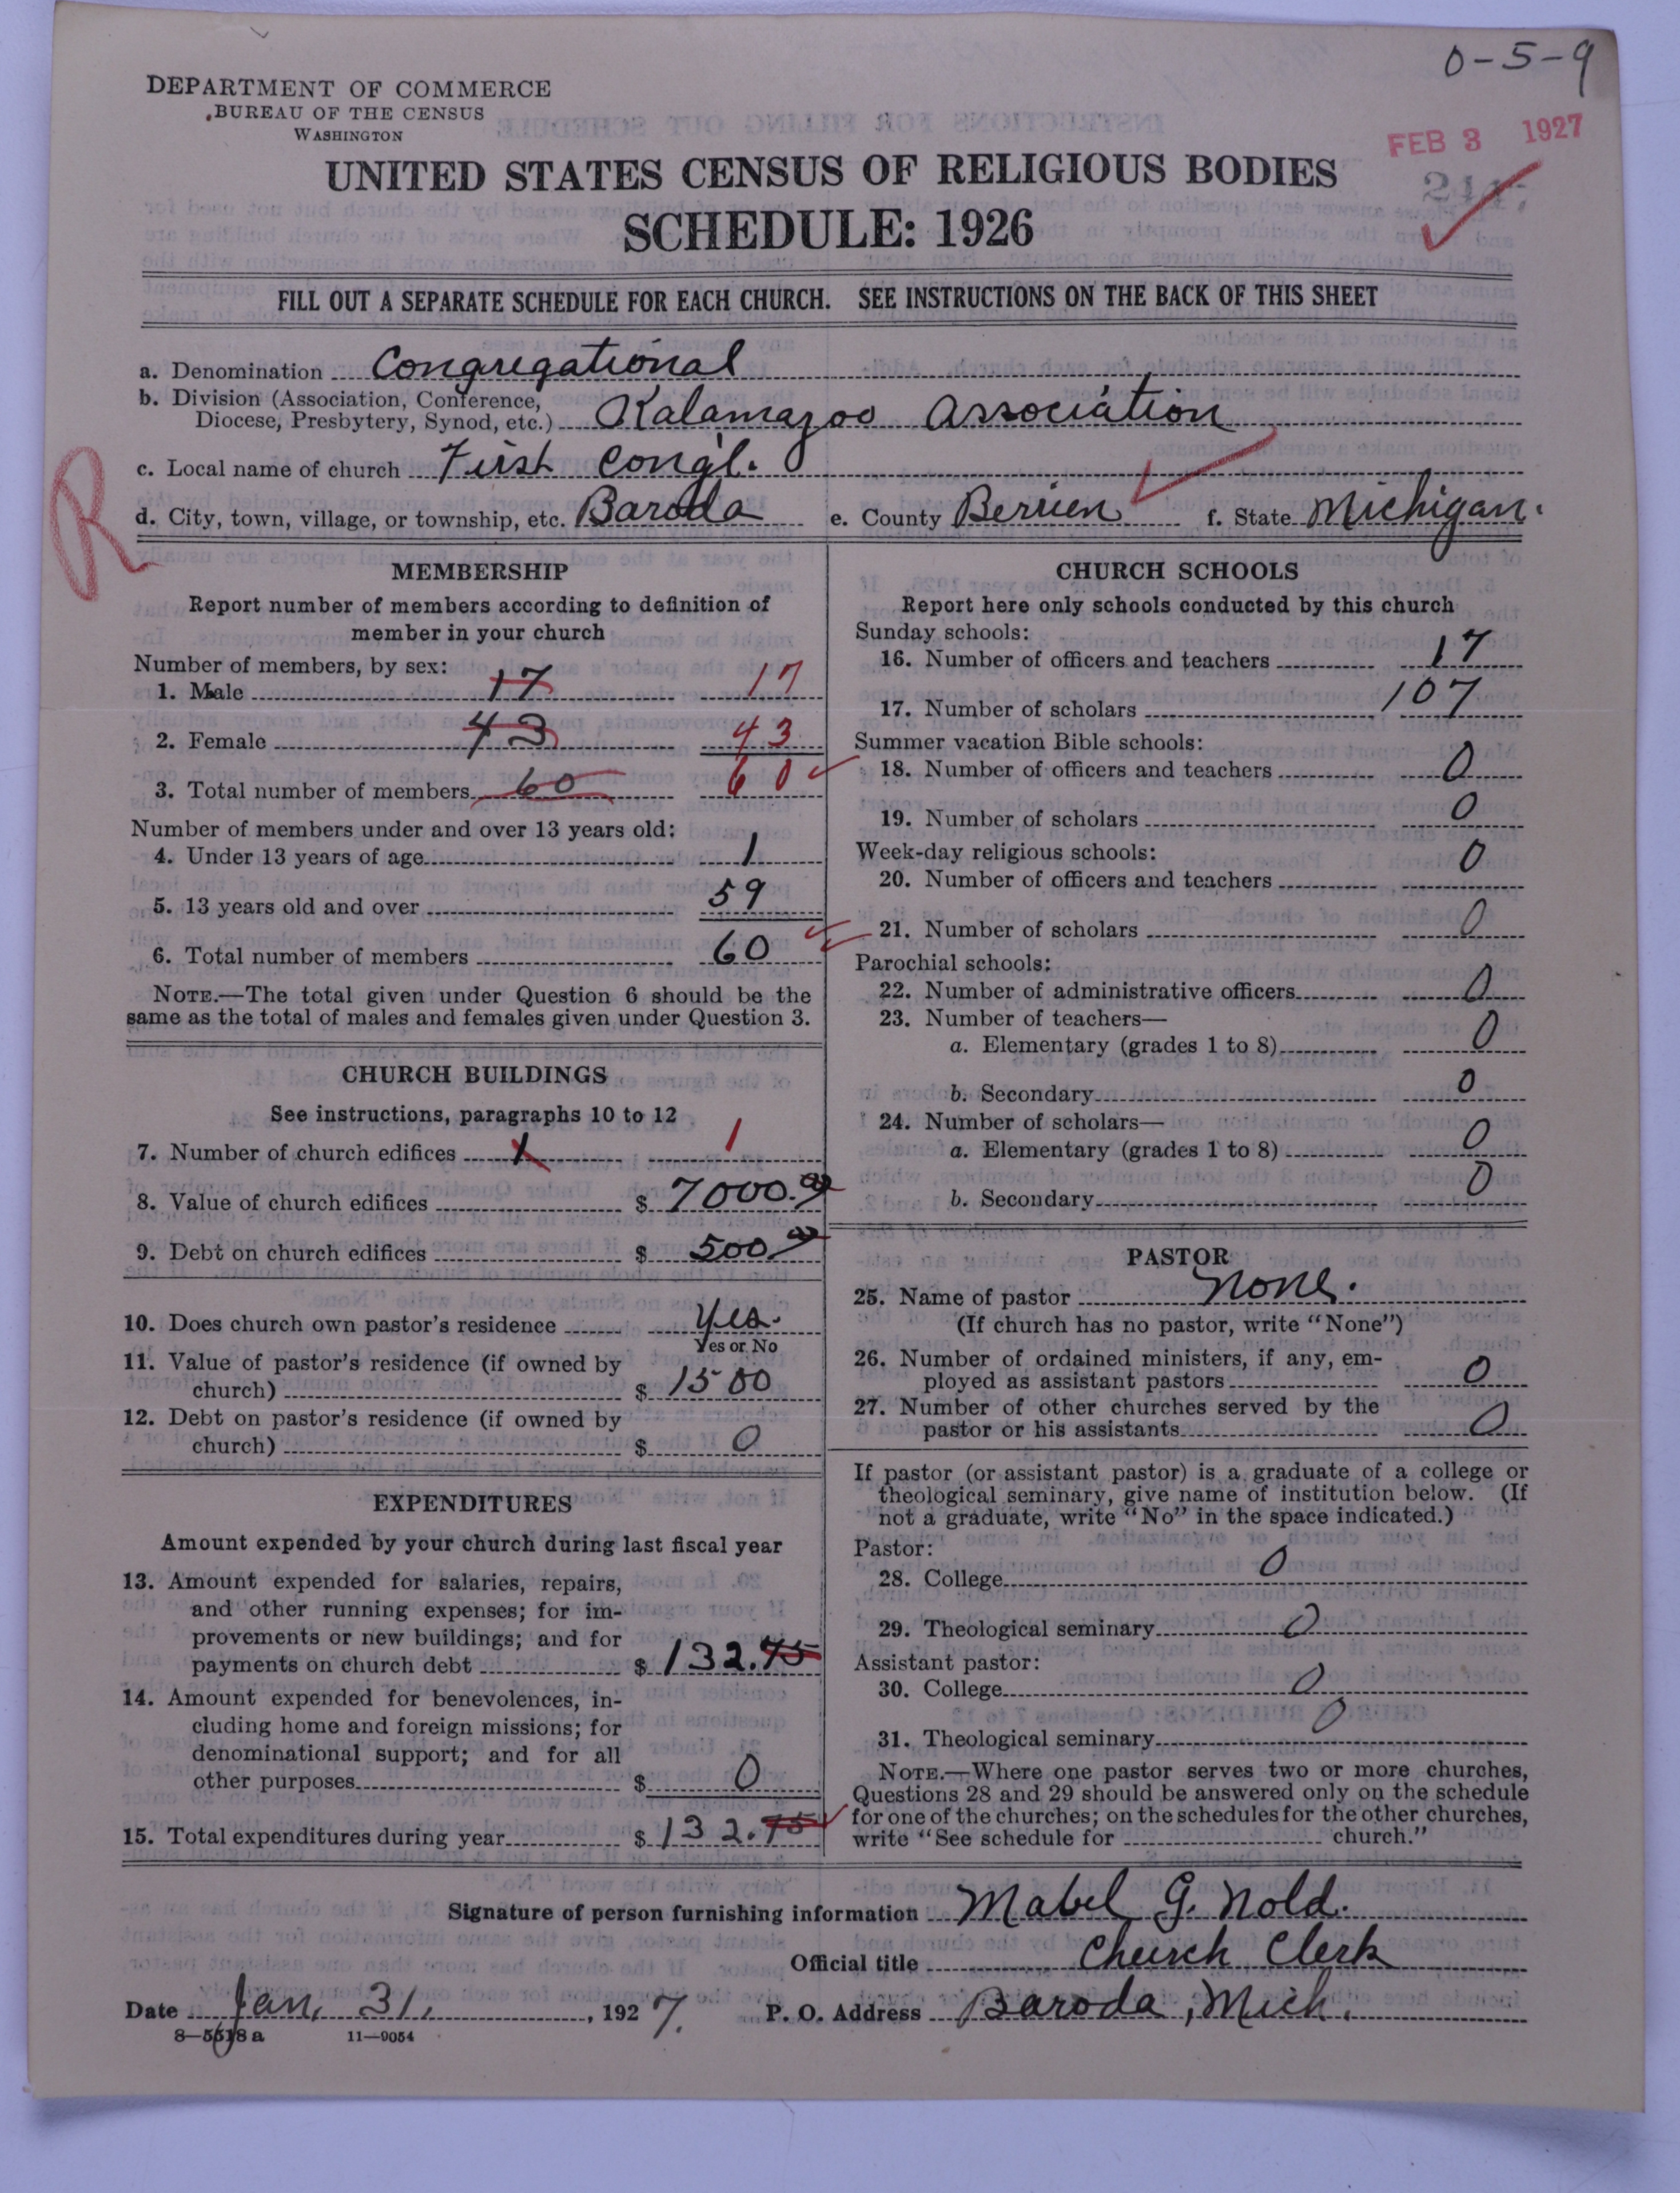 0-5-9
DEPARTMENT OF COMMERCE
BUREAU OF THE CENSUS
WASHINGTON
FEB 3 1927
UNITED STATES CENSUS OF RELIGIOUS BODIES
SCHEDULE: 1926
FILL OUT A SEPARATE SCHEDULE FOR EACH CHURCH. SEE INSTRUCTIONS ON THE BACK OF THIS SHEET
a. Denomination Congregational
b. Division (Association, Conference,
Diocese, Presbytery, Synod, etc.) Kalamazoo Association
c. Local name of church First Cong'l.
R
d. City, town, village, or township, etc. Baroda e. County Berrien f. State Michigan.
MEMBERSHIP
Report number of members according to definition of
member in your church
Number of members, by sex:
1. Male 17 17
2. Female 43 43
3. Total number of members 60 60
Number of members under and over 13 years old:
4. Under 13 years of age 1
5. 13 years old and over 59
6. Total number of members 60
NOTE.—The total given under Question 6 should be the
same as the total of males and females given under Question 3.
CHURCH BUILDINGS
See instructions, paragraphs 10 to 12
7. Number of church edifices 1 1
8. Value of church edifices $ 7000.00
9. Debt on church edifices $ 500.00
10. Does church own pastor's residence Yes.
Yes or No
11. Value of pastor's residence (if owned by
church) $ 1500
12. Debt on pastor's residence (if owned by
church) $ 0
EXPENDITURES
Amount expended by your church during last fiscal year
13. Amount expended for salaries, repairs,
and other running expenses; for im-
provements or new buildings; and for
payments on church debt $ 132.75
14. Amount expended for benevolences, in-
cluding home and foreign missions; for
denominational support; and for all
other purposes $ 0
15. Total expenditures during year $ 132.75
CHURCH SCHOOLS
Report here only schools conducted by this church
Sunday schools:
16. Number of officers and teachers 17
17. Number of scholars 107
Summer vacation Bible schools:
18. Number of officers and teachers 0
19. Number of scholars 0
Week-day religious schools:
20. Number of officers and teachers 0
21. Number of scholars 0
Parochial schools:
22. Number of administrative officers 0
23. Number of teachers—
a. Elementary (grades 1 to 8) 0
b. Secondary 0
24. Number of scholars—
a. Elementary (grades 1 to 8) 0
b. Secondary 0
PASTOR
25. Name of pastor none.
(If church has no pastor, write "None")
26. Number of ordained ministers, if any, em-
ployed as assistant pastors 0
27. Number of other churches served by the
pastor or his assistants 0
If pastor (or assistant pastor) is a graduate of a college or
theological seminary, give name of institution below. (If
not a graduate, write "No" in the space indicated.)
Pastor:
28. College 0
29. Theological seminary 0
Assistant pastor:
30. College 0
31. Theological seminary 0
NOTE.—Where one pastor serves two or more churches,
Questions 28 and 29 should be answered only on the schedule
for one of the churches; on the schedules for the other churches,
write "See schedule for church."
Signature of person furnishing information Mabel G. Nold.
Official title Church Clerk
Date Jan, 31, , 1927. P. O. Address Baroda, Mich.
8—5518 a 11—9054